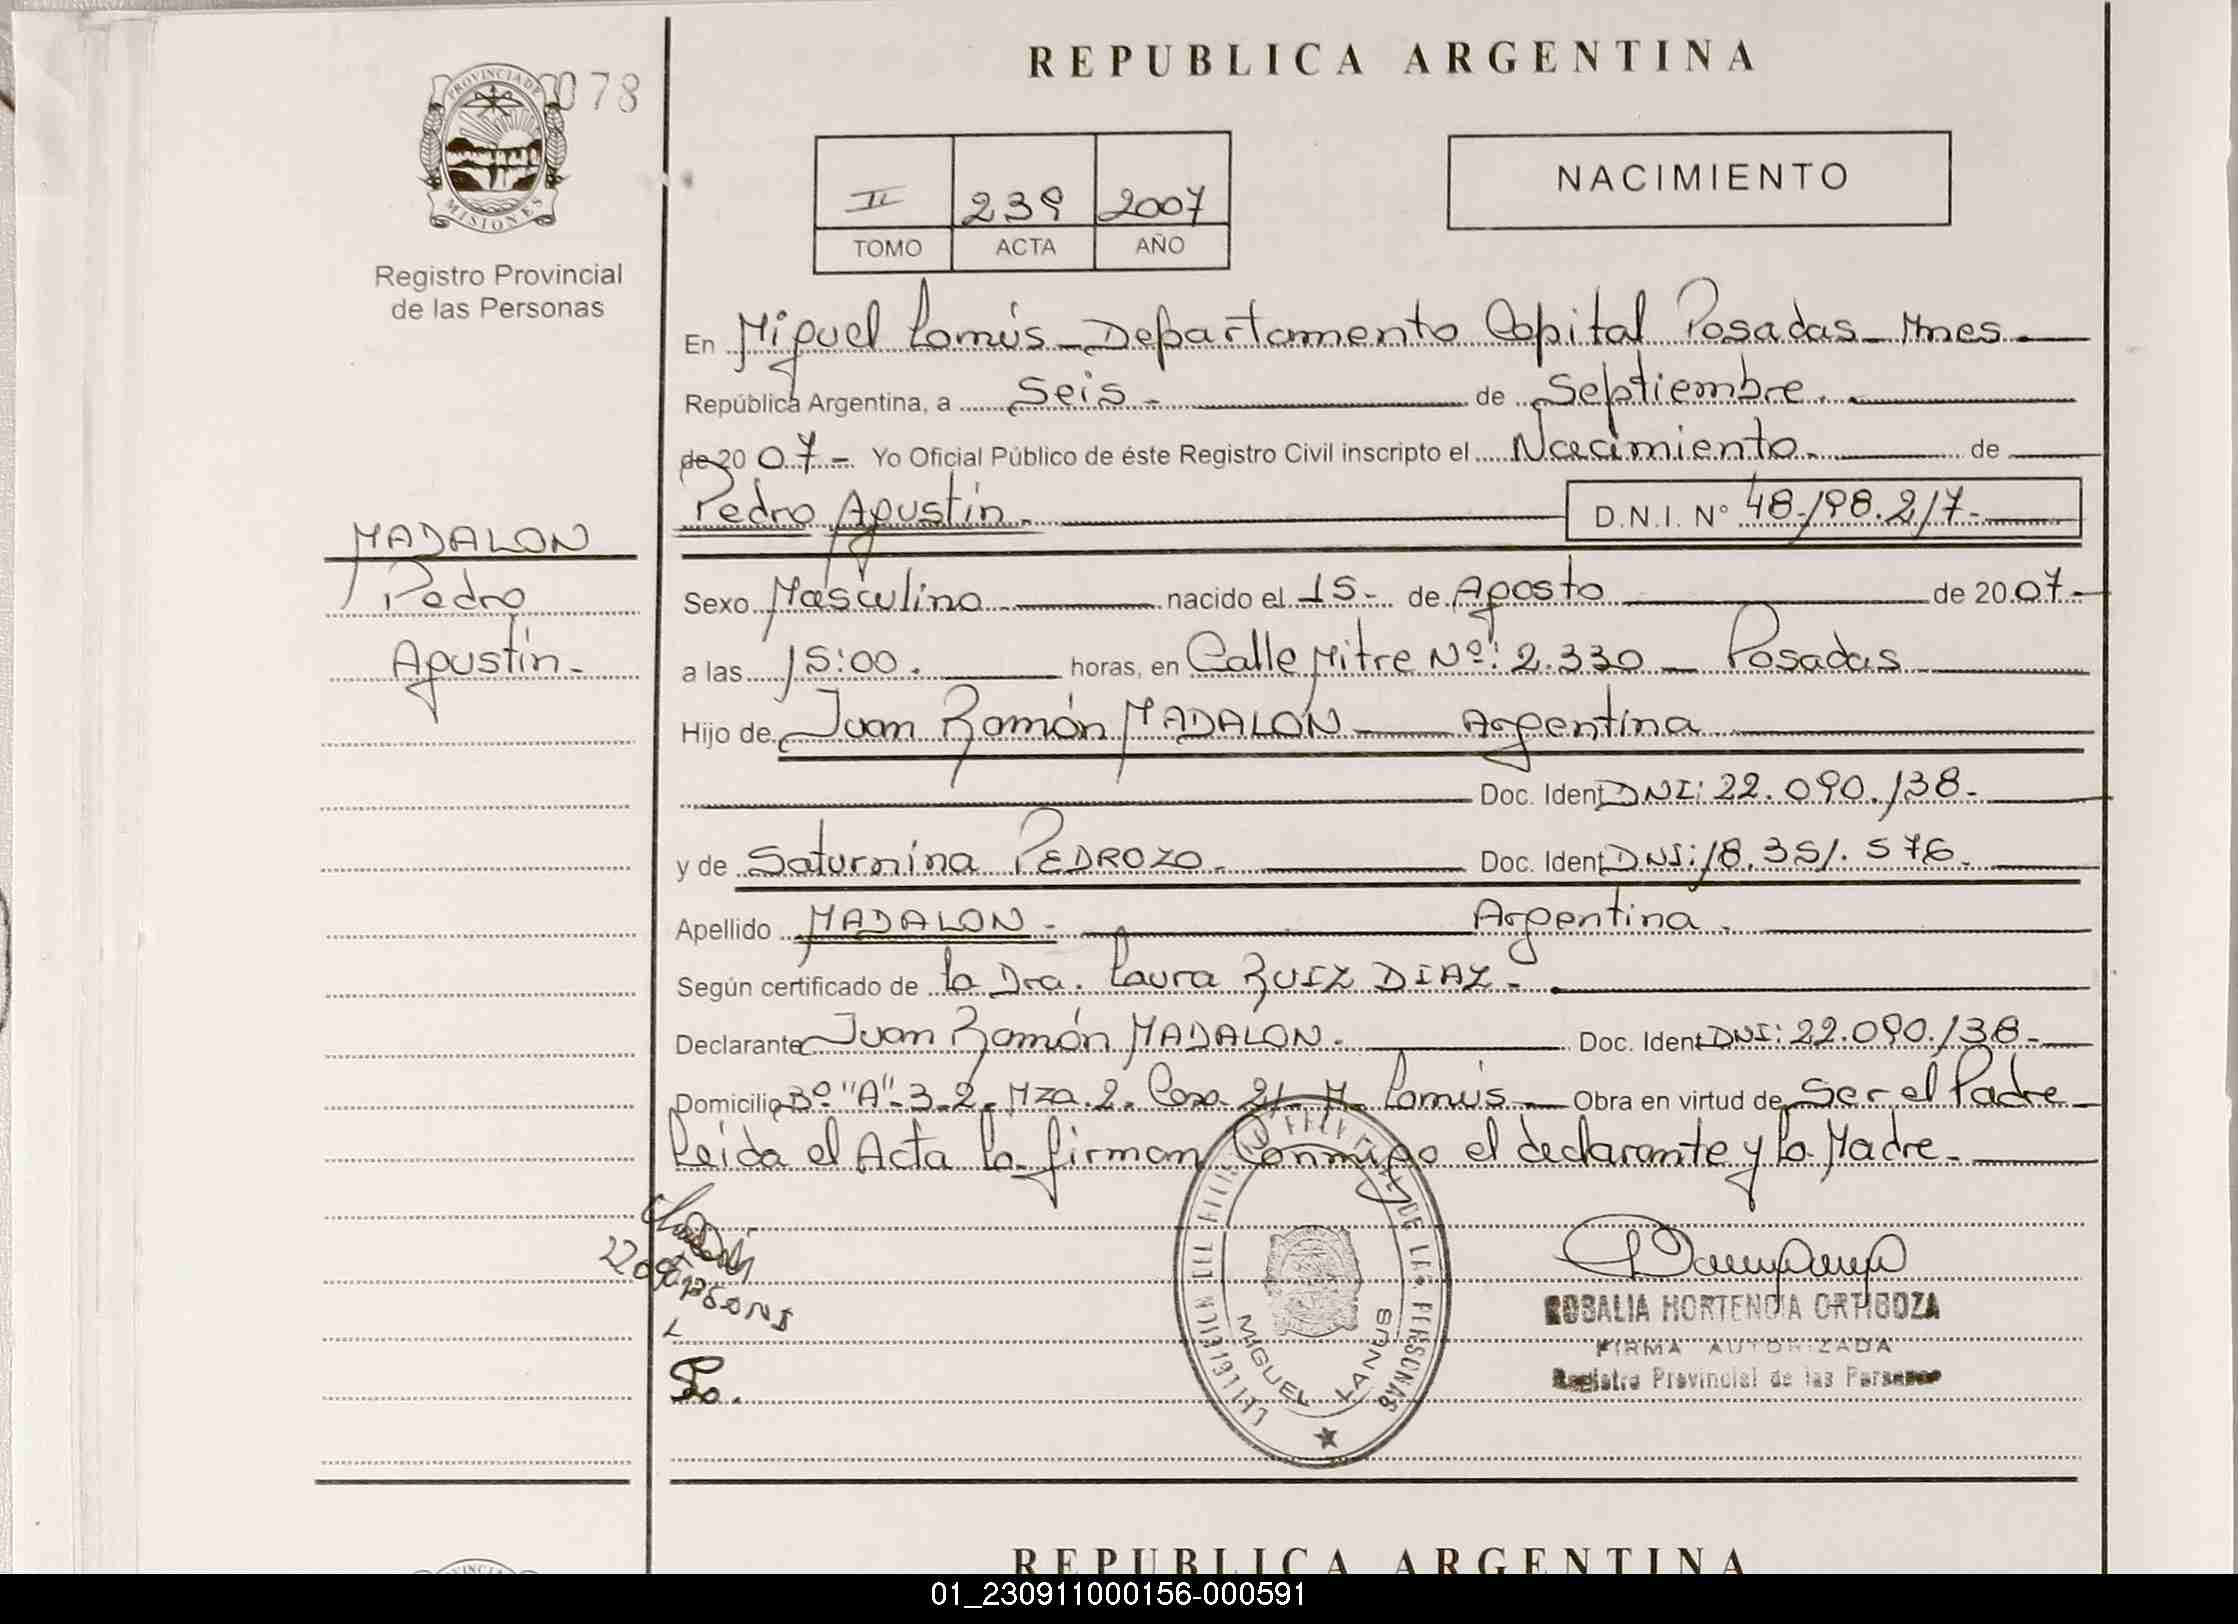 REPUBLICA ARGENTINA
PROVINCIA DE
MISIONES
078
Registro Provincial
de las Personas
II 239 2007
TOMO ACTA AÑO
NACIMIENTO
En Miguel Lanús - Departamento Capital Posadas - Mnes -
República Argentina, a Seis - de Septiembre.
de 2007 - Yo Oficial Público de éste Registro Civil inscripto el Nacimiento. de
Pedro Agustín. D.N.I. Nº 48.198.217-
MADALON
Pedro
Agustín -
Sexo Masculino nacido el 15 - de Agosto de 2007 -
a las 15:00. horas, en Calle Mitre Nº: 2.330 - Posadas
Hijo de Juan Ramón MADALON - Argentina
Doc. Ident DNI: 22.090.138 -
y de Saturnina PEDROZO. Doc. Ident DNI: 18.351.576 -
Apellido MADALON - Argentina.
Según certificado de la Dra. Laura RUIZ DIAZ -
Declarante Juan Ramón MADALON. Doc. Ident DNI: 22.090.138 -
Domicilio Bº "A" - 3-2 - Mza. 2 - Casa 21 - M. Lanús - Obra en virtud de Ser el Padre
Leída el Acta la firman Conmigo el declarante y la Madre -
DE LAS PERSONAS
MIGUEL LANUS
ROSALIA HORTENCIA ORTIGOZA
FIRMA AUTORIZADA
Registro Provincial de las Personas
REPUBLICA ARGENTINA
01_230911000156-000591